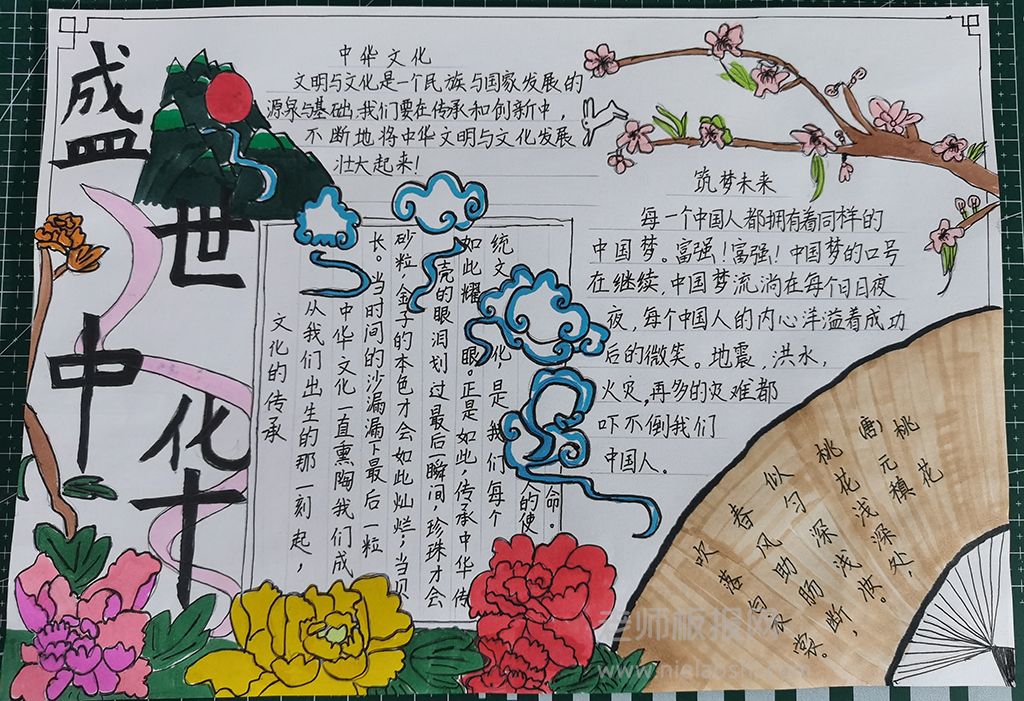 盛世中华
中华文化
文明与文化是一个民族与国家发展的
源泉与基础,我们要在传承和创新中,
不断地将中华文明与文化发展
壮大起来!
文化的传承
从我们出生的那一刻起,
中华文化一直熏陶我们成
长。当时间的沙漏漏下最后一粒
砂粒,金子的本色才会如此灿烂;当贝
壳的眼泪划过最后一瞬间,珍珠才会
如此耀眼。正是如此,传承中华传
统文化,是我们每个
的使
命。
筑梦未来
每一个中国人都拥有着同样的
中国梦。富强!富强!中国梦的口号
在继续,中国梦流淌在每个日日夜
夜,每个中国人的内心洋溢着成功
后的微笑。地震,洪水,
火灾,再多的灾难都
吓不倒我们
中国人。
桃花
(唐)元稹
桃花浅深处,
似匀深浅妆。
春风助肠断,
吹落白衣裳。